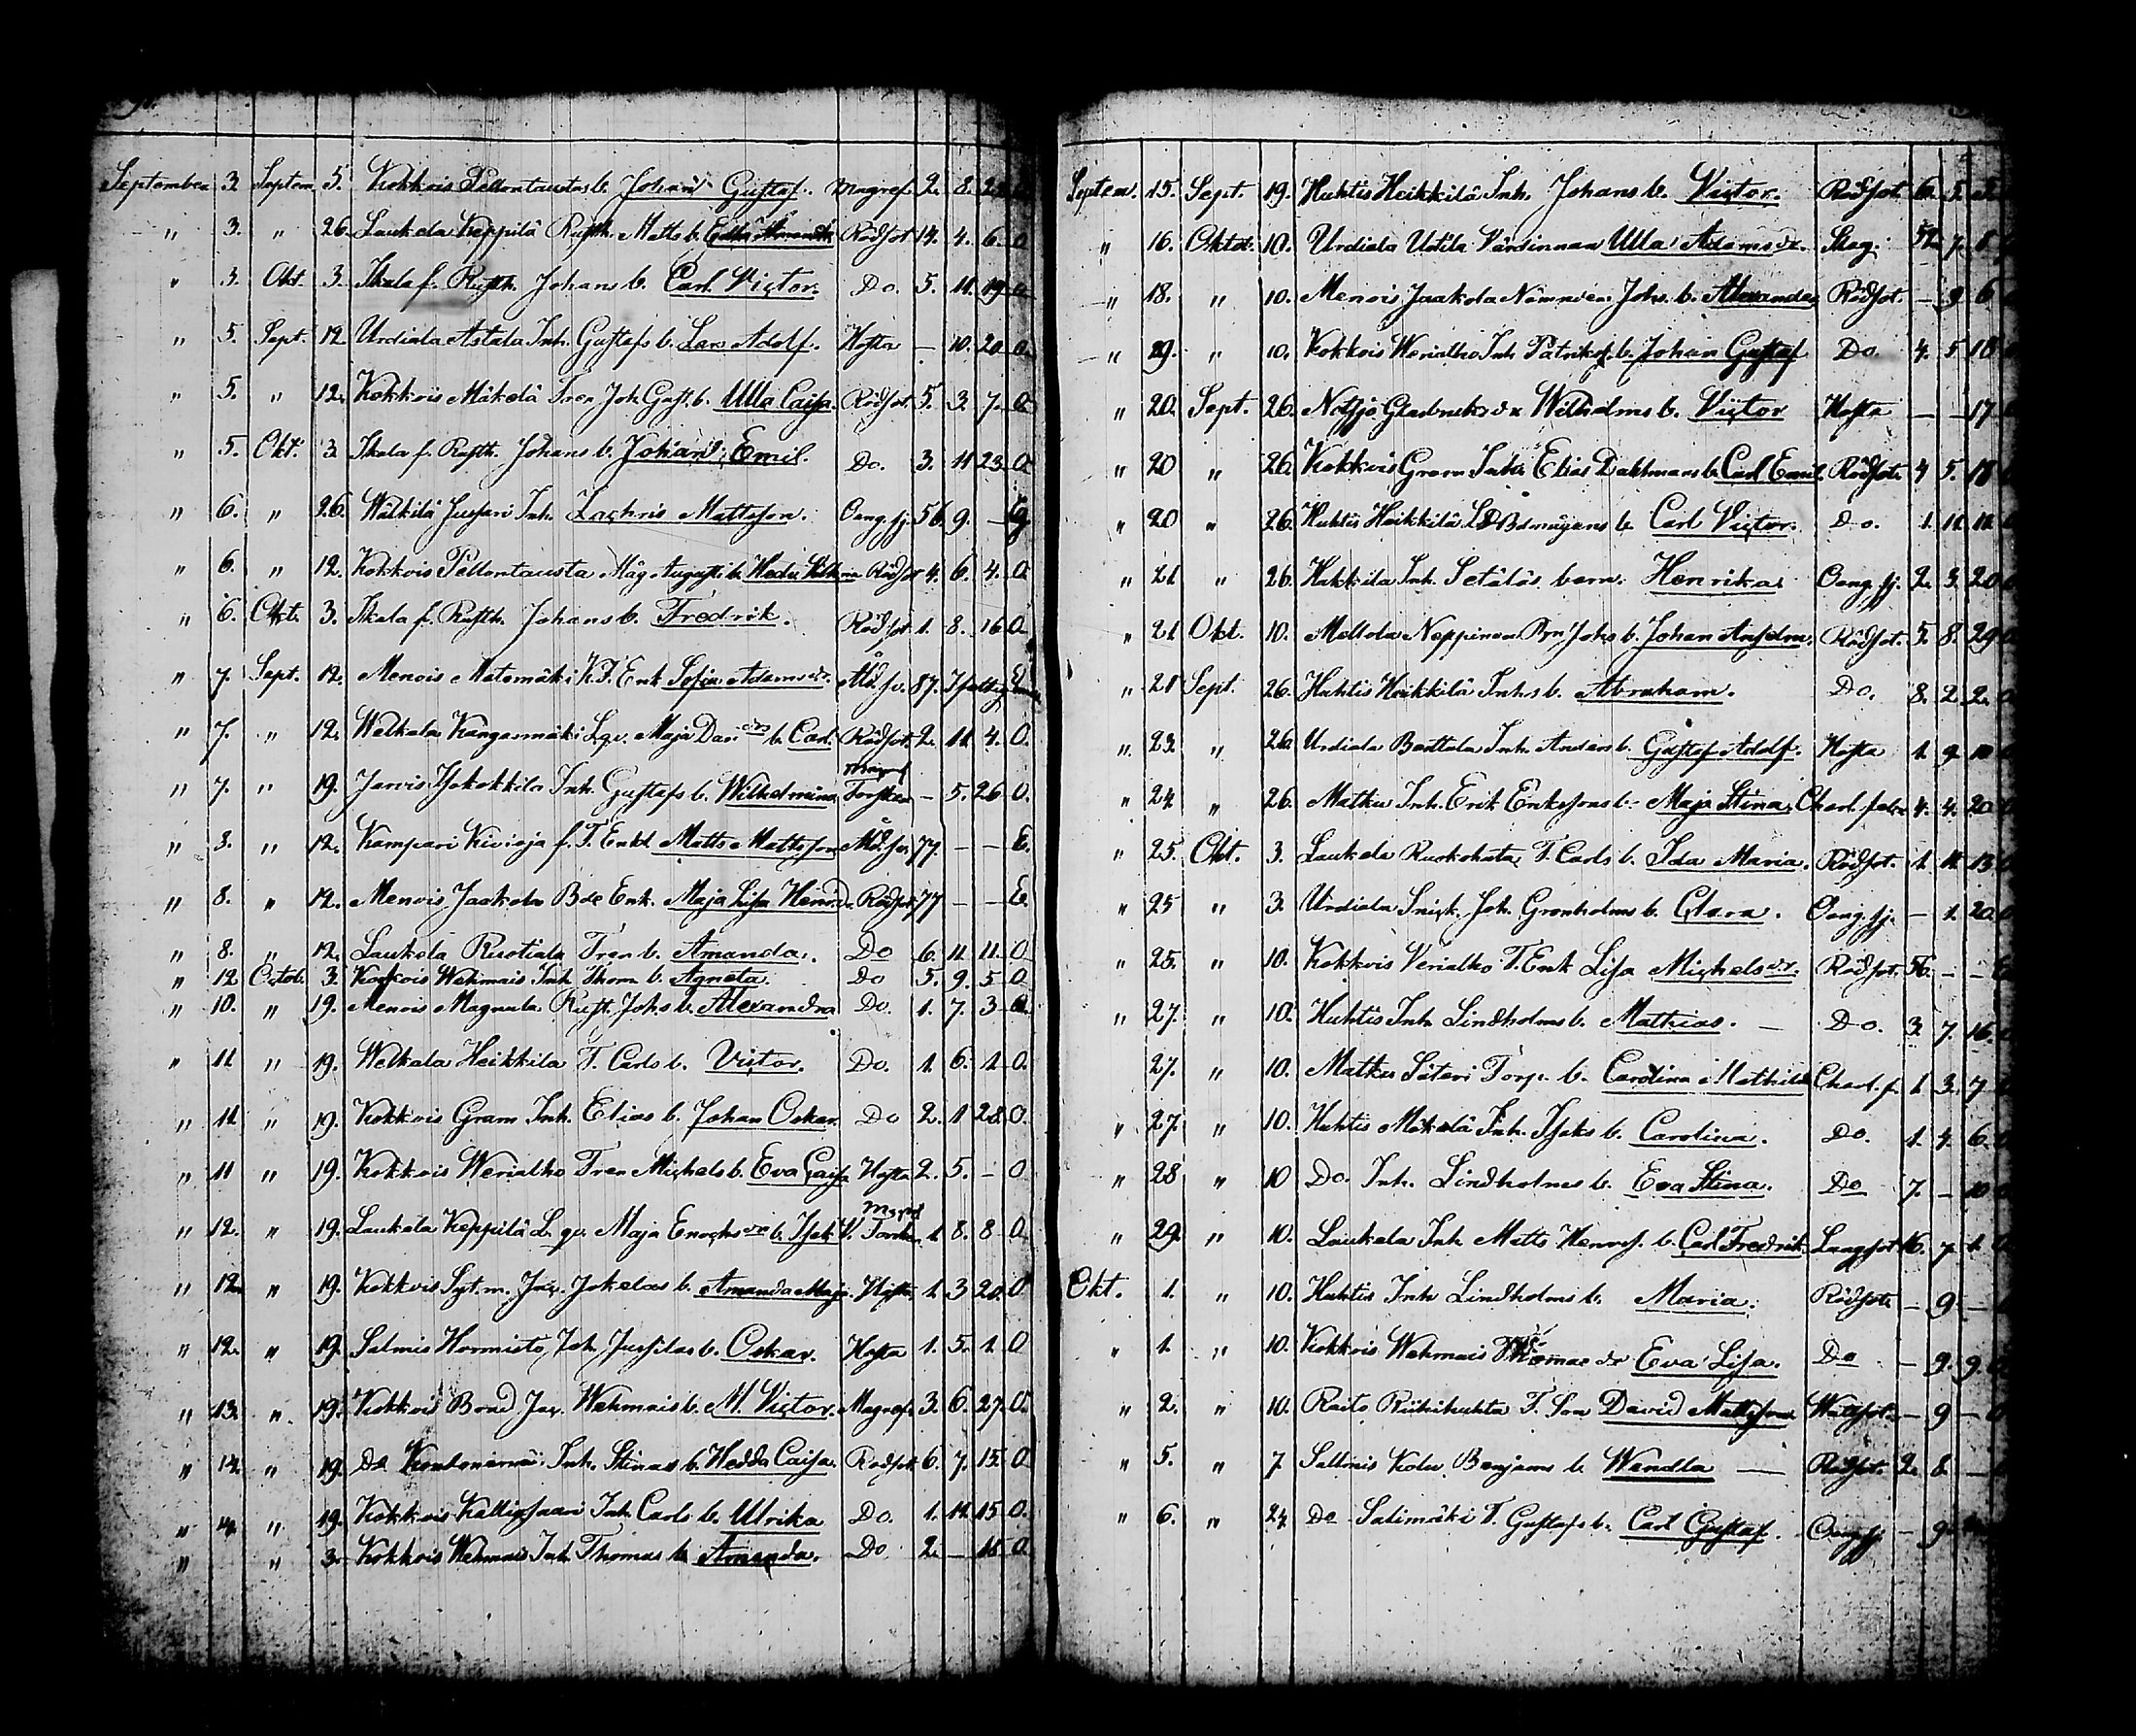 September 3. Septem. 5. Kokkois Pellontausta b. Johan Gustaf. Magref. 2. 8.
" 3. " 26. Laukela Keppilä Rusth. Matts b. Edla Amanda Rödsot 14. 4. 6. O
" 3. Okt. 3. Skala f. Rusth. Johans b. Carl Victor. Do. 5. 11. 19 O
" 5. Sept. 12 Urdiala Astala Inh. Gustafs b. Lars Adolf. Hosta — 10. 20 O.
" 5. " 12. Kokkois Mäkelä Tren Joh. Gust. b. Ulla Caisa. Rödsot. 5. 3. 7. O
" 5. Okt. 3. Skala f. Rusth. Johans b. Johan Emil. Do. 3. 11 23. O
" 6. " 26. Wälkilä Jussari Inh. Zachris Mattsson. Oeng. sj. 56. 9. — G
" 6. " 12. Kokkois Pellontausta Måg Augusti b. Rödsot 4. 6. 4. O
" 6. Okt. 3. Skala f. Rusth. Johans b. Fredrik. Rödsot 1. 8. 16 O.
" 7. Sept. 12. Menois Matomäki K.T. Enk Sofia Adamsdr. Åld. sv. 87.
" 7. " 12. Welkala Kangasmäki Lqv. Maja b. Carl. Rödsot. 2. 11. 4. O.
" 7. " 19. Jarvis Isokokkila Inh. Gustafs b. Wilhelmina Torsken — 5. 26 O.
" 8. " 12. Kampari Kivioja f. T. Enkl. Matts Mattsson Åld. sv. 77. — — E.
" 8. " 12. Menois Jaakola Bde Enk. Maja Lisa Henrdr. Rödsot 77 — — E.
" 8. " 12. Laukela Ruotiala Tren b. Amanda. Do 6. 11. 11. O
" 12 Octob. 3. Kokkois Wahmais Inh. Thom. b. Agneta. Do 5. 9. 5 O
" 10. " 19. Menois Magnula Rust. Johs b. Alexandra Do. 1. 7. 3 O.
" 11 " 19. Welkala Heikkila T. Carls b. Victor. Do. 1. 6. 1 O.
" 11. " 19. Kokkois Gram Inh. Elias b. Johan Oskar. Do 2. 1 28. O.
" 11 " 19. Kokkois Werialho Tren Michels b. Eva Caisa Hosta 2. 5. — O
" 12. " 19. Laukela Keppilä L. qv. Maja Enochsdr b. Isak V. Torsken 1. 8. 8 O.
" 12. " 19. Kokkois Jac. Jokelas b. Amanda Maja. Hosta. 1. 3 20. O
" 12. " 19. Salmis Hormisto Joh. Jussilas b. Oskar. Hosta 1. 5. 1. O
" 13. " 19. Kokkois Bond Jac. Wahmais b. M. Victor. Magref. 3. 6. 27. O.
" 14. " 19. Do Inh. Stinas b. Hedda Caisa. Rödsot 6. 7. 15. O
" 14. " 19. Kokkois Kalliosaari Inh. Carls b. Ulrika Do. 1. 11. 15 O.
" " 3. Kokkois Wahmais Inh. Thomas b. Amanda. Do. 2. — 11 O.
Septem. 15. Sept. 19. Huhtis Heikkilä Inh. Johans b. Victor. Rödsot 6. 5.
" 16. Oktob. 10. Urdiala Untila Värdinnan Ulla Adamsdr. Slag. 52. 7.
" 18. " 10. Menois Jaakola Nämndem. Johs. b. Alexander Rödsot. — 9 6
" 19. " 10. Kokkois Werialho Inh. Patriks b. Johan Gustaf Do. 4. 5 18
" 20. Sept. 26. Notsjö Glasbruks dr Wilhelms b. Victor Hosta — — 17
" 20 " 26. Kokkois Gram Inhs Elias Dahlmans b. Carl Emil. Rödsot. 4 5. 18
" 20 " 26. Huhtis Heikkilä b. Carl Victor. Do. 1. 11. 11.
" 21 " 26. Hukkila Inh. Setäläs barn. Henrika. Oeng. sj. 2. 3. 20
" 21 Okt. 10. Mellola Noppinen Johs b. Johan Anselm. Rödsot. 5. 8. 29
" 21 Sept. 26. Huhtis Heikkilä Inhs b. Abraham. Do. 8. 2. 2.
" 23. " 26. Urdiala Benttala Inh. Anders b. Gustaf Adolf. Hosta 1. 9. 10
" 24 " 26. Matku Inh. Erik Erikssons b. Maja Stina Charl. feber 4. 4. 20
" 25. Okt. 3. Laukela Ruokohata T. Carls b. Ida Maria. Rödsot. 1. 11. 13
" 25 " 3. Urdiala Snick. Joh. Grönholms b. Clara. Oeng. sj. — 1. 20.
" 25. " 10. Kokkois Verialho T. Enk Lisa Michelsdr. Rödsot. 56. — —
" 27. " 10. Huhtis Inh. Lindholms b. Mathias. — Do. 3. 7. 16.
27. " 10. Matku Säteri Torp. b. Carolina Mathilda Charl. f. 1 3. 7
" 27. " 10. Huhtis Mäkelä Inh. Isaks b. Carolina. Do. 1. 4. 6.
" 28 " 10 Do. Inh. Lindholms b. Eva Stina. Do 7. — 10
" 29. " 10. Laukela Inh. Matts Henrs. b. Carl Fredrik Lungsot 16. 7. 1.
Okt. 1. " 10. Huhtis Inh. Lindholms b. Maria. Rödsot. — 9. —
" 1. " 10. Kokkois Wahmais Thomas dr Eva Lisa. Do. — 9. 9.
" 2. " 10. Raito Riihihuhta T. Son David Mattsson Wattsot. — 9 —
" 5. " 7 Sallmis Kolu Benjams b. Wendla — Rödsot. 2. 8. —
" 6. " 24 Do Salimäki T. Gustafs b. Carl Gustaf. Oeng. sj — 9.